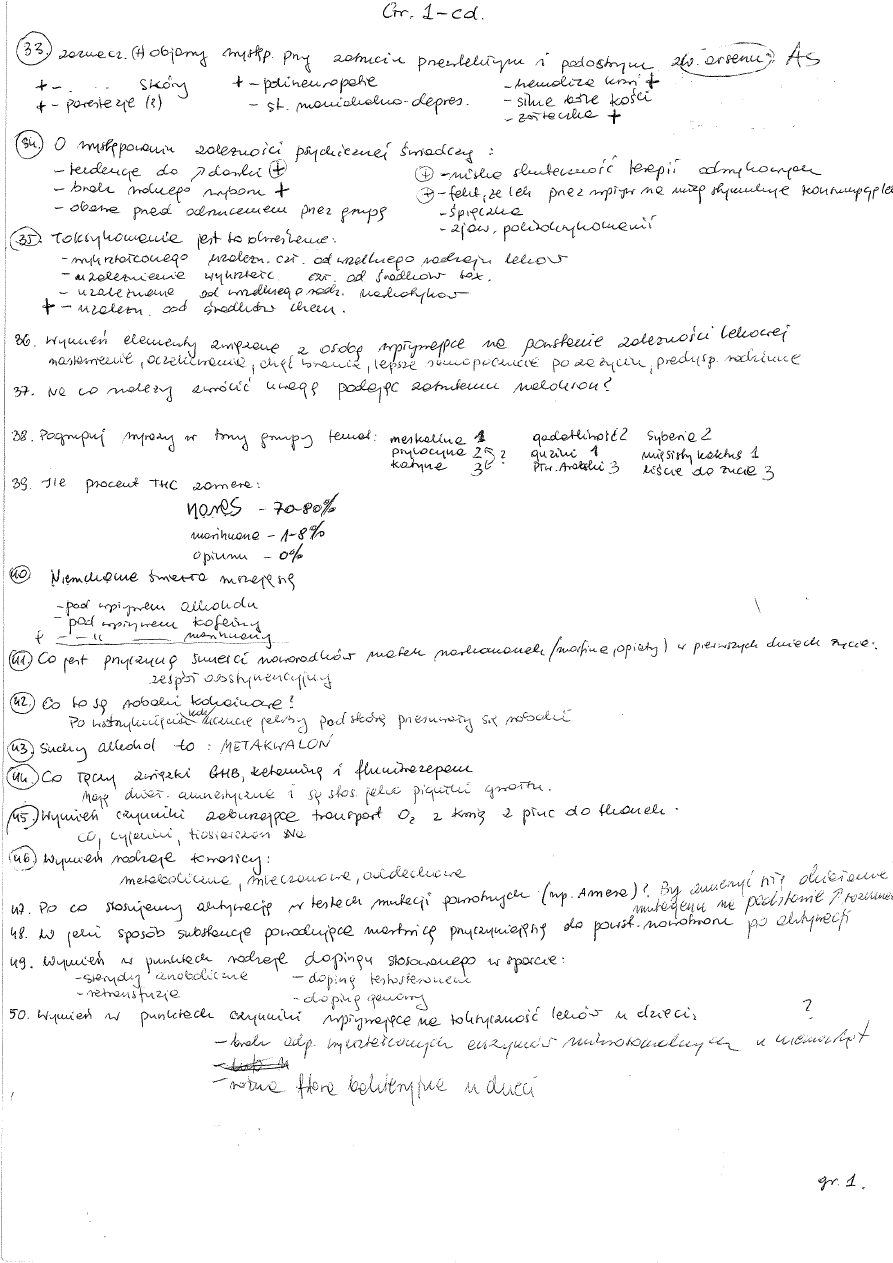 Gr. 1-cd.
33. zaznacz (+) objawy występ. przy zatruciu przewlekłym i podostrym zw. arsenu: AS
+ - . . . skóry + - polineuropatie - hemoliza krwi +
+ - parestezje (?) - st. maniakalno-depres. - silne bóle kości
- żółtaczka +
34. O występowaniu zależności psychicznej świadczy:
- tendencje do ↗ dawki (+) (+) - niska skuteczność terapii odwykowych
- brak wolnego wyboru + (+) - fakt, że lek przez wpływ na mózg stymuluje konsumpcję
- obawa przed odrzuceniem przez grupę - śpiączka
- zjaw. politoksykomanii
35. Toksykomania jest to określenie:
- wykształconego uzależn. czł. od wszelkiego rodzaju leków
- uzależnienie wykształc. czł. od środków tox.
- uzależnienie od wszelkiego rodz. narkotyków
+ - uzależn. od środków chem.
36. Wymień elementy związane z osobą wpływające na powstanie zależności lekowej
nastawienie, oczekiwania, chęć brania, lepsze samopoczucie po zażyciu, predysp. rodzinne
37. Na co należy zwrócić uwagę podając zatrutemu nalokson?
38. Pogrupuj wyrazy w trzy grupy temat: meskalina 1 gadatliwość 2 Syberia 2
psylocyna 2 ? guziki 1 mięsisty kaktus 1
katyna 3 Płw. Arabski 3 liście do żucia 3
39. Ile procent THC zawiera:
HARES - 70-80%
marihuana - 1-8%
opium - 0%
40 Niemchciane śmierci zdarzają się
- pod wpływem alkoholu
- pod wpływem kofeiny
+ - - 11 - marihuany
41) Co jest przyczyną śmierci noworodków matek narkomanek /morfina, opiaty) w pierwszych dniach życia:
zespół abstynencyjny
42. Co to są robaki kokainowe?
Po wstrzyknięciu koka uczucie jakby pod skórą przesuwały się robaki
43. Suchy alkohol to : METAKWALON
44. Co łączy związki GHB, ketaminę i flunitrazepam
Mają dział. amnestyczne i są stos. jako pigułki gwałtu.
45. Wymień czynniki zaburzające transport O₂ z krwią z płuc do tkanek.
CO, cyjanki, tiosiarczan Na
46) Wymień rodzaje kwasicy:
metaboliczna, mleczanowa, oddechowa
47. Po co stosujemy aktywację w testach mutacji powrotnych (np. Amesa)? By zmierzyć siłę działania
mutagenu na podstawie ↗ rozmnaż.
po aktywacji
48. W jaki sposób substancje powodujące martwicę przyczyniają się do powst. nowotworu
49. Wymień w punktach rodzaje dopingu stosowanego w sporcie:
- sterydy anaboliczne - doping testosteronem
- retransfuzja - doping genowy
50. Wymień w punktach czynniki wpływające na toksyczność leków u dzieci: ?
- brak odp. wykształconych enzymów mikrosomalnych u niemowląt
- różna flora bakteryjna u dzieci
gr. 1.